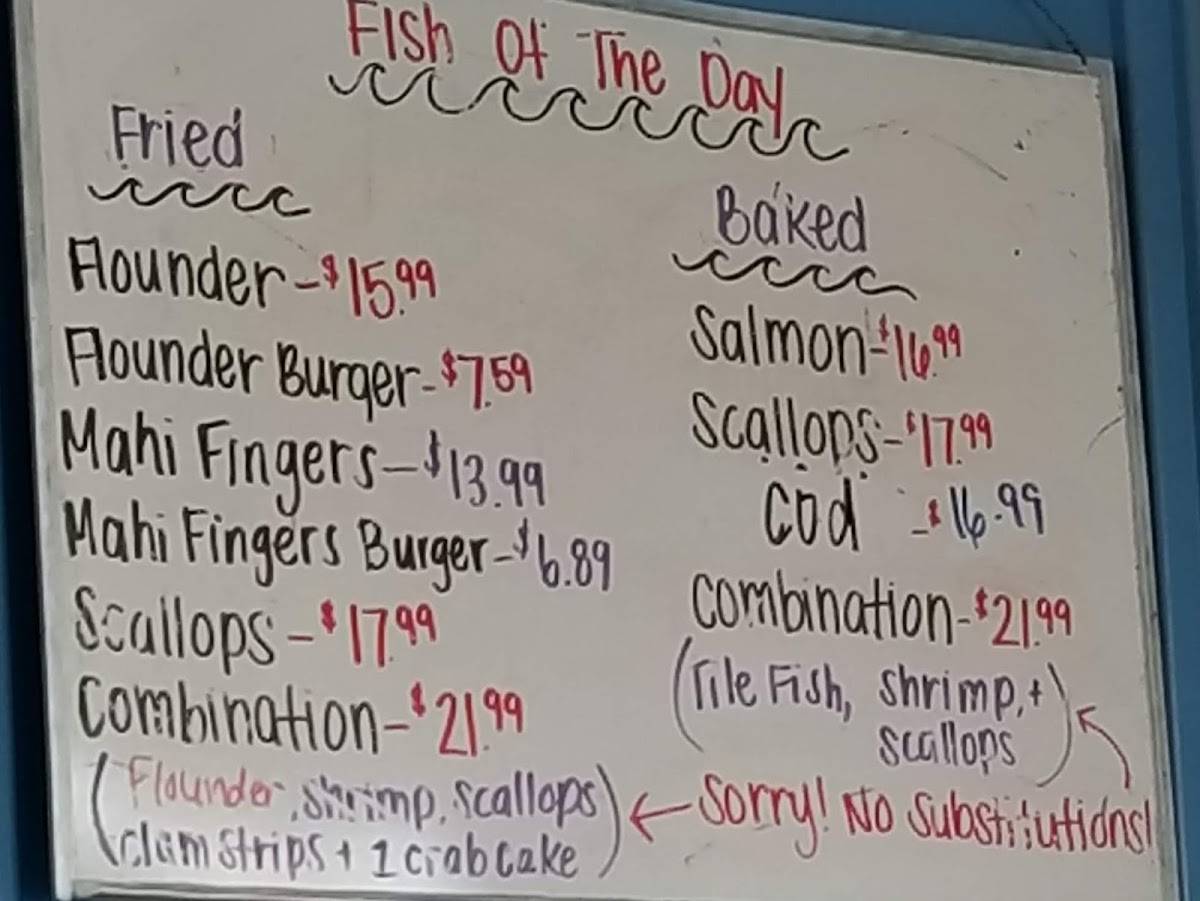 Fish Of The Day
Fried
Flounder - $15.99
Flounder Burger - $7.59
Mahi Fingers - $13.99
Mahi Fingers Burger - $6.89
Scallops - $17.99
Combination - $21.99
(Flounder, Shrimp, Scallops
clam strips + 1 crab cake)
Baked
Salmon - $16.99
Scallops - $17.99
Cod - $16.99
Combination - $21.99
(Tile Fish, Shrimp, +
scallops)
← Sorry! No Substitutions!